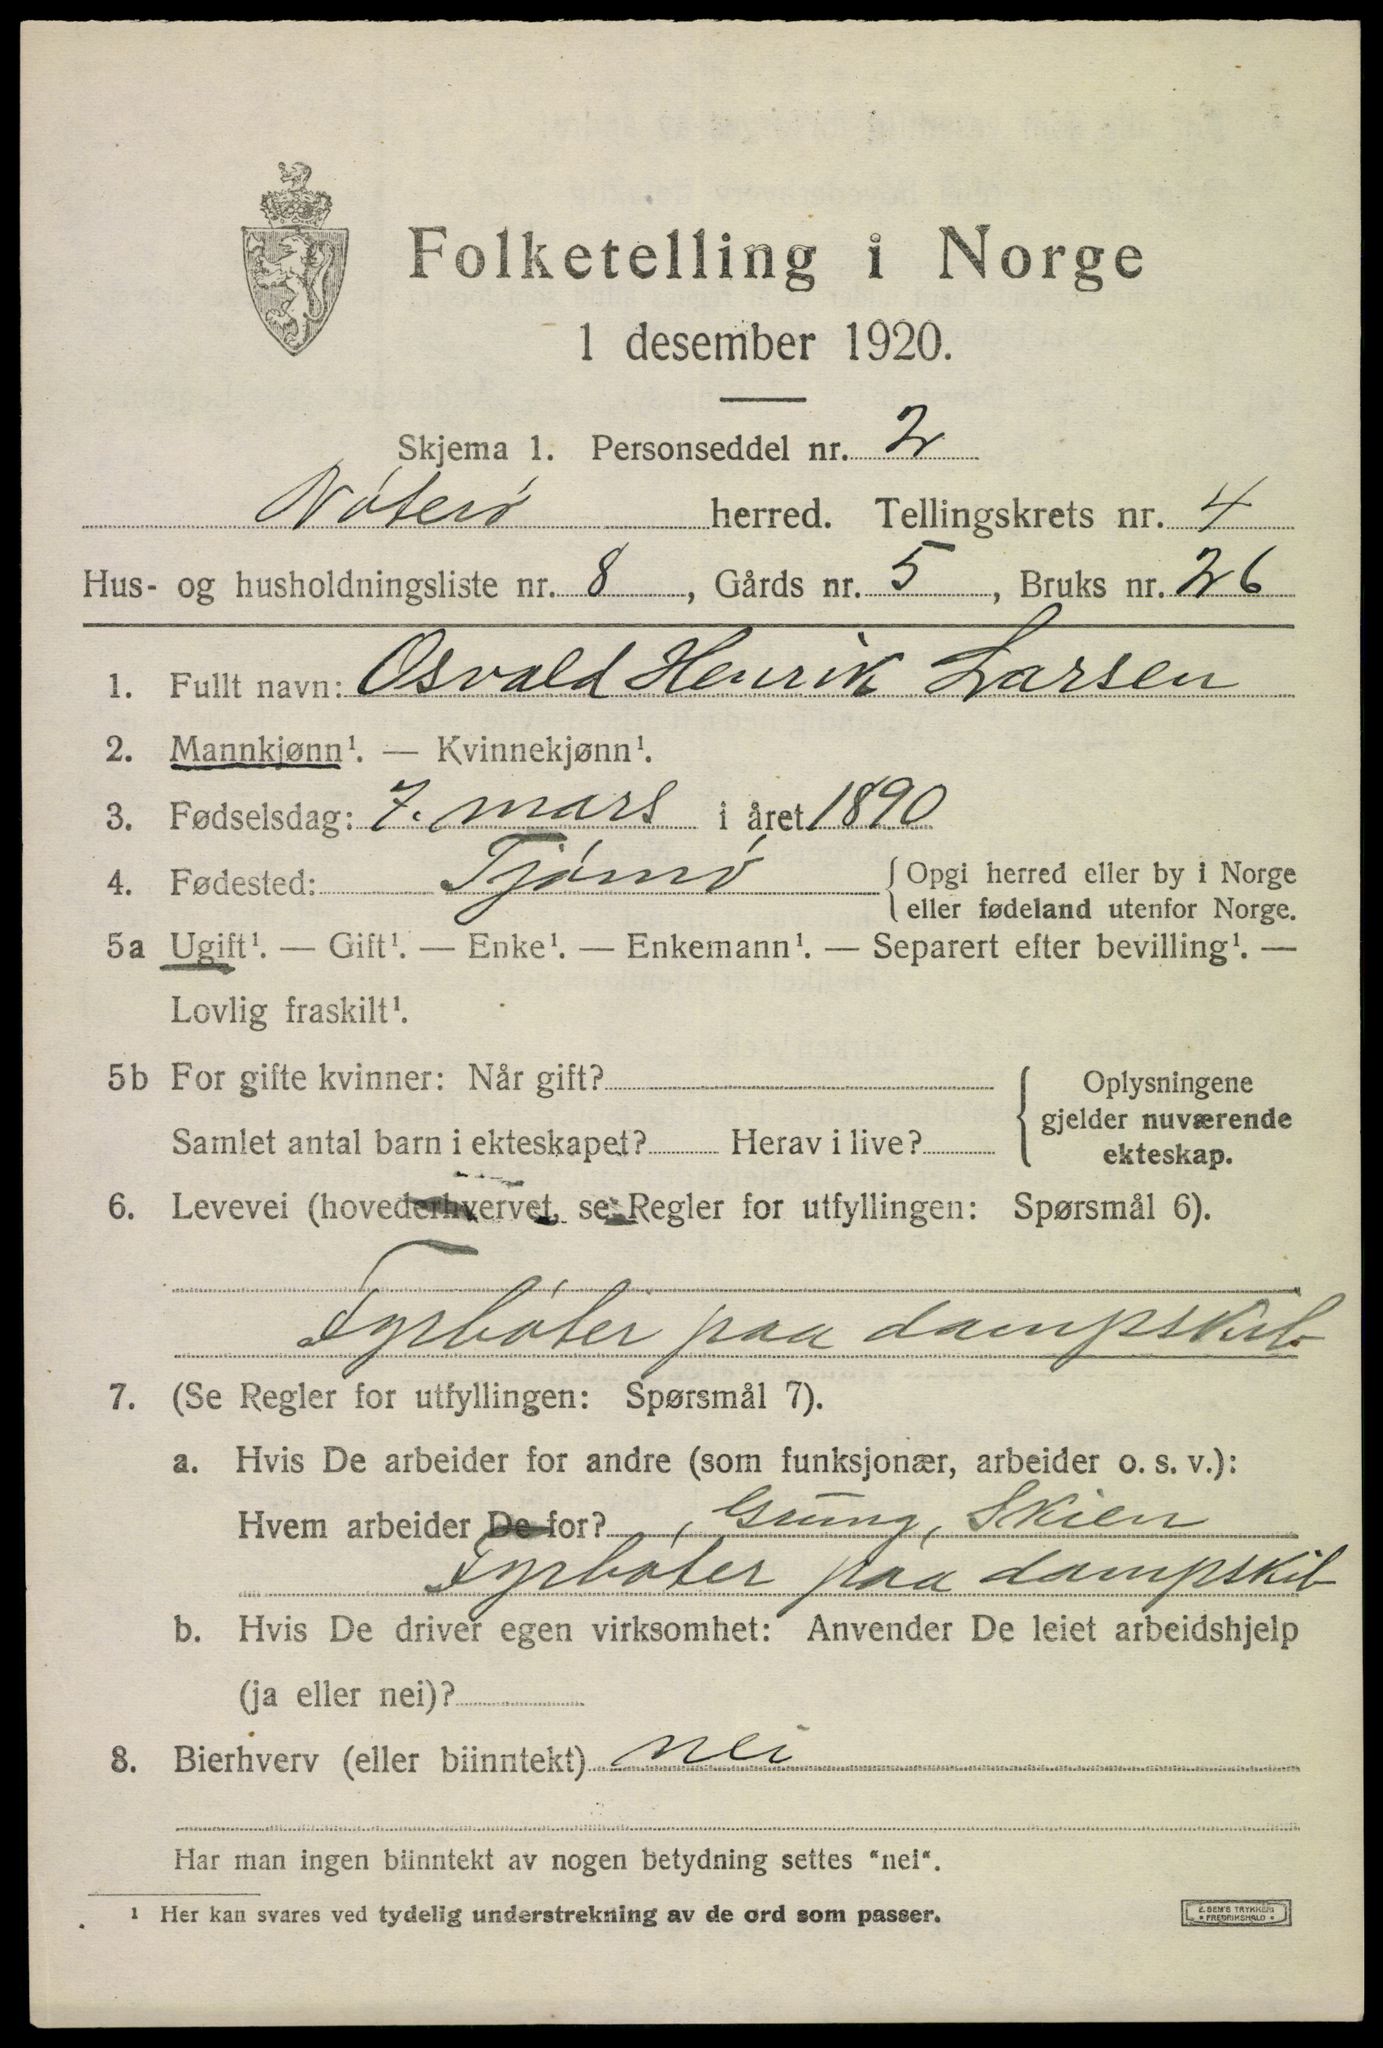 Folketelling i Norge
1 desember 1920.
Skjema 1. Personseddel nr. 2
Nøterø herred. Tellingskrets nr. 4
Hus- og husholdningsliste nr. 8, Gårds nr. 5, Bruks nr. 26
1. Fullt navn: Osvald Henrik Larsen
2. Mannkjønn¹. — Kvinnekjønn¹.
3. Fødselsdag: 7. mars i året 1890
4. Fødested: Tjømø { Opgi herred eller by i Norge
eller fødeland utenfor Norge.
5a Ugift¹. — Gift¹. — Enke¹. — Enkemann¹. — Separert efter bevilling¹. —
Lovlig fraskilt¹.
5b For gifte kvinner: Når gift? { Oplysningene
gjelder nuværende
Samlet antal barn i ekteskapet? Herav i live? ekteskap.
6. Levevei (hovederhvervet, se Regler for utfyllingen: Spørsmål 6).
Fyrbøter paa dampskib
7. (Se Regler for utfyllingen: Spørsmål 7).
a. Hvis De arbeider for andre (som funksjonær, arbeider o. s. v.):
Hvem arbeider De for? Skien
Fyrbøter paa dampskib
b. Hvis De driver egen virksomhet: Anvender De leiet arbeidshjelp
(ja eller nei)?
8. Bierhverv (eller biinntekt) nei
Har man ingen biinntekt av nogen betydning settes "nei".
¹ Her kan svares ved tydelig understrekning av de ord som passer.
E. SEM'S TRYKKERI
• FREDRIKSHALD •